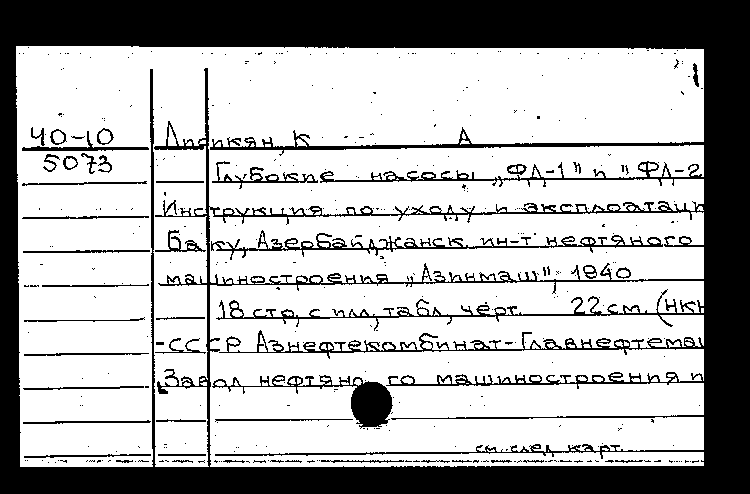 40-10 Лпепкян, К А
5073 Глубокие насосы „ФД-1" и "ФД-2
Инструкция по уходу и эксплоатаци
Баку, Азербайджанск. ин-т нефтяного
машиностроения „Азинмаш", 1940
18 стр, с илл, табл, черт. 22 см. (НКН
-СССР Азнефтекомбинат-Главнефтемаш
Завод нефтяного машиностроения п
см. след. карт.